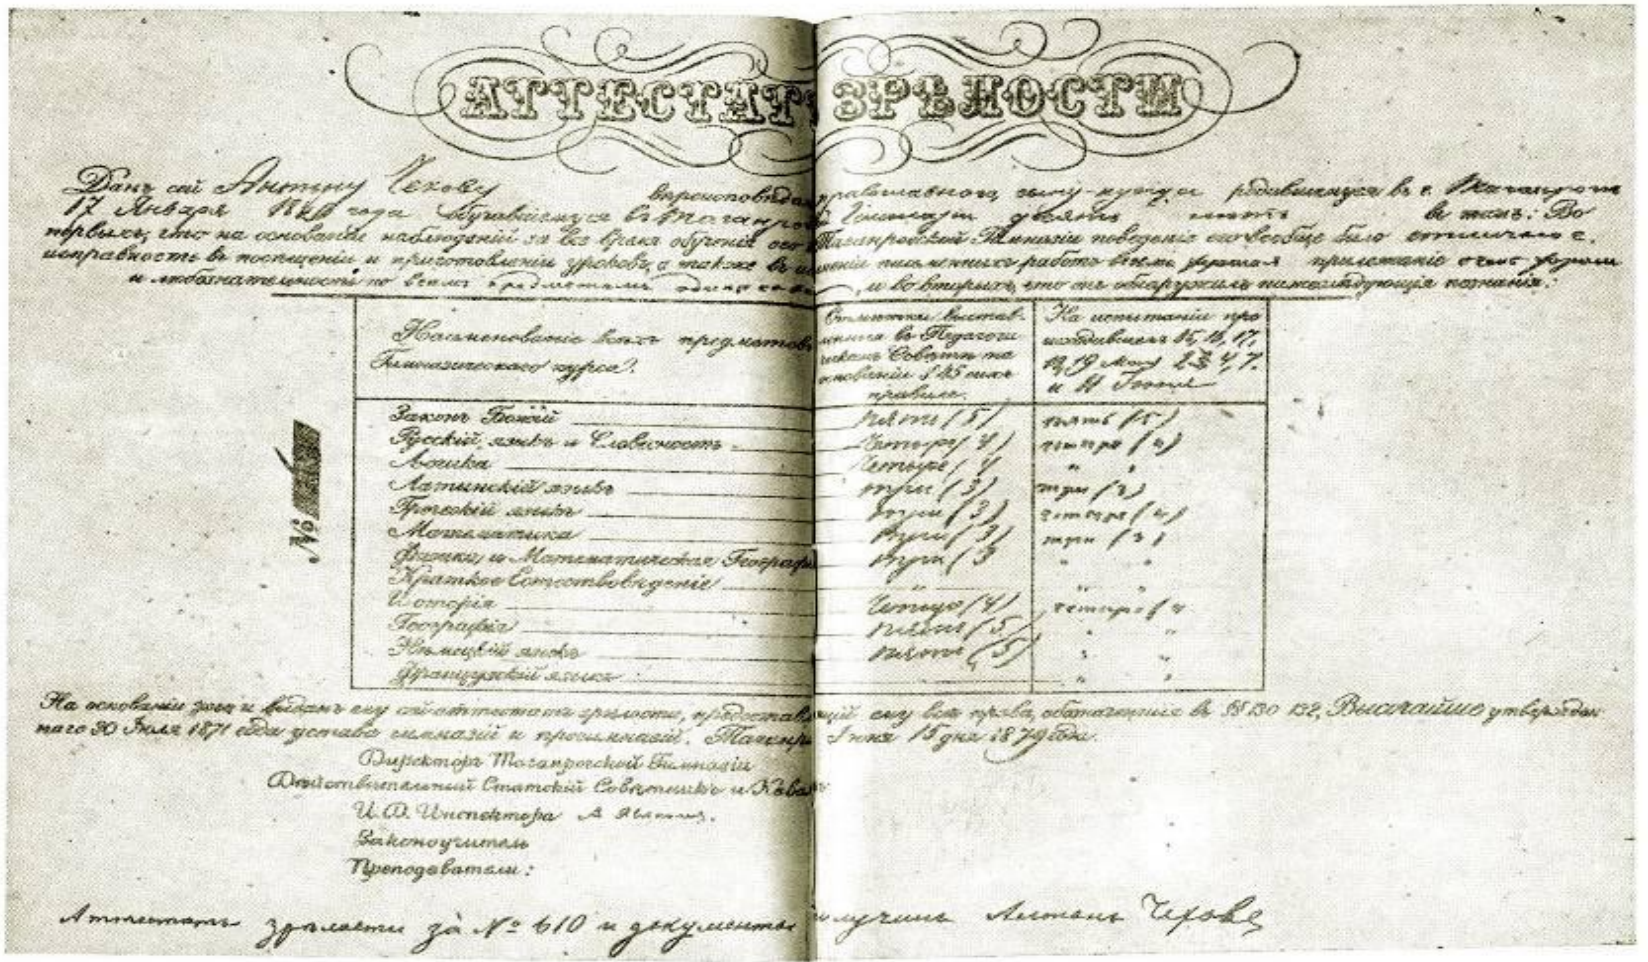 АТТЕСТАТЪ ЗРѢЛОСТИ
Данъ сей Антону Чехову вѣроисповѣданія православнаго, сыну купца родившемуся въ г. Таганрогѣ
17 Января 1860 года обучавшемуся въ Таганрогской Гимназіи десять лѣтъ въ томъ: Во
первыхъ, что на основаніи наблюденій за все время обученія его въ Таганрогской Гимназіи поведеніе его вообще было отличное,
исправность въ посѣщеніи и приготовленіи уроковъ, а также въ исполненіи письменныхъ работъ весьма хорошая прилежаніе очень хорошее
и любознательность по всѣмъ предметамъ одинаковая, и во вторыхъ, что онъ обнаружилъ нижеслѣдующія познанія:
Наименованіе всѣхъ предметовъ
Гимназическаго курса.
Отмѣтки выстав-
ленныя въ Педагоги-
ческомъ Совѣтѣ на
основаніи § 45 сихъ
правилъ.
На испытаніи про
исходившемъ 15, 16, 17,
19 Мая 2 3 4, 7.
и 11 Іюня
Законъ Божій пять (5) пять (5)
Русскій языкъ и Словесность четыре (4) четыре (4)
Логика Четыре (4 " "
Латинскій языкъ три (3) три (3)
Греческій языкъ три (3) четыре (4)
Математика три (3) три (3)
Физика и Математическая Географія три (3 " "
Краткое Естествовѣденіе " "
Исторія Четыре (4) четыре (4
Географія пять (5) " "
Нѣмецкій языкъ пять (5) " "
Французскій языкъ " "
№
На основаніи чего и выданъ ему сей аттестатъ зрѣлости, предоставляющій ему всѣ права, обозначенныя въ §§ 130 132, Высочайше утвержден
наго 30 Іюля 1871 года устава гимназій и прогимназій. Таганрогъ Іюня 15 дня 1879 года.
Директоръ Таганрогской Гимназіи
Дѣйствительный Статскій Совѣтникъ и Кавалеръ
И. Д. Инспектора
Законоучитель
Преподаватели:
Аттестатъ зрѣлости за № 610 и документы получилъ Антонъ Чеховъ